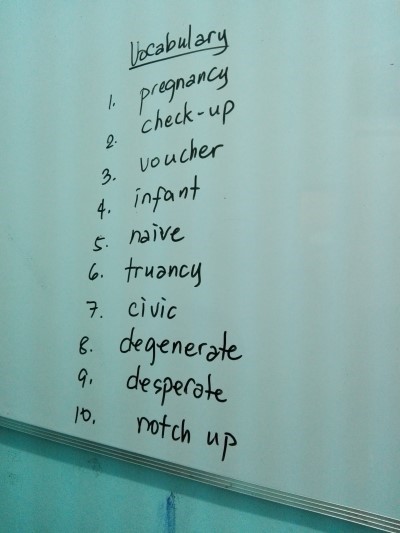 Vocabulary
1. pregnancy
2. check-up
3. voucher
4. infant
5. naive
6. truancy
7. civic
8. degenerate
9. desperate
10. notch up